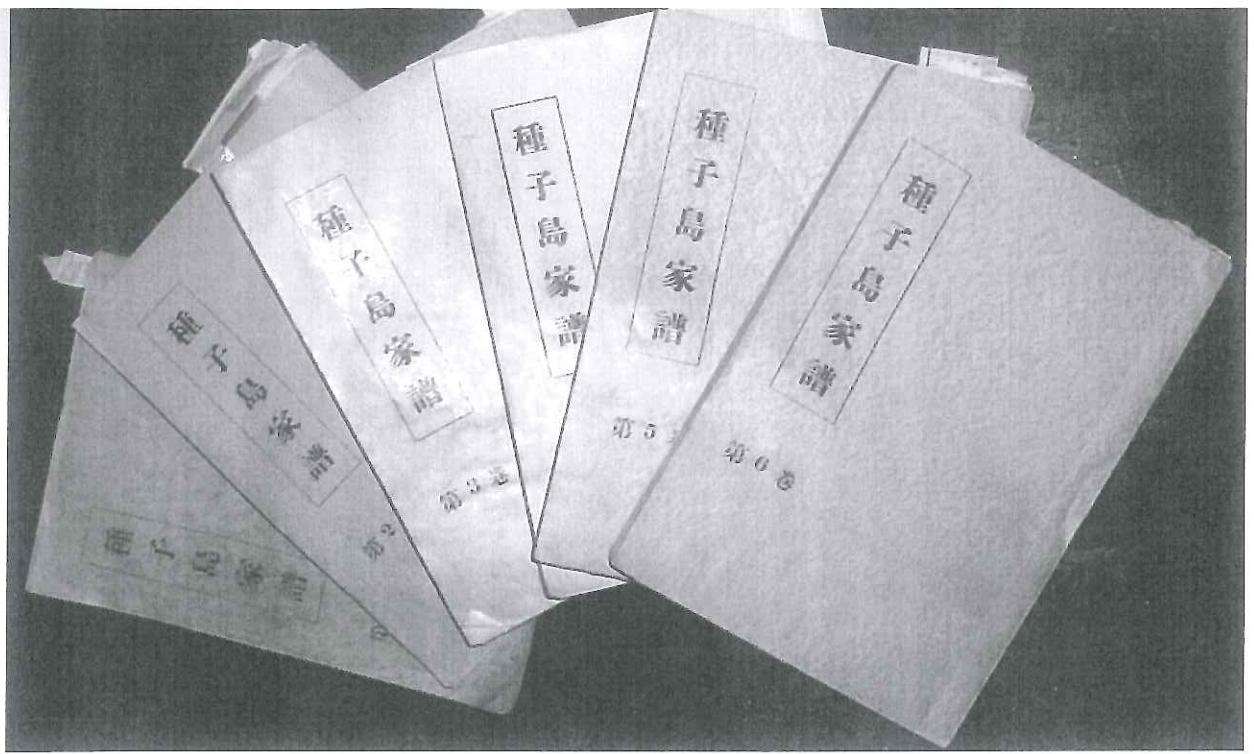 種子島家譜
種子島家譜
第2
種子島家譜
第3巻
種子島家譜
種子島家譜
第5
種子島家譜
第6巻